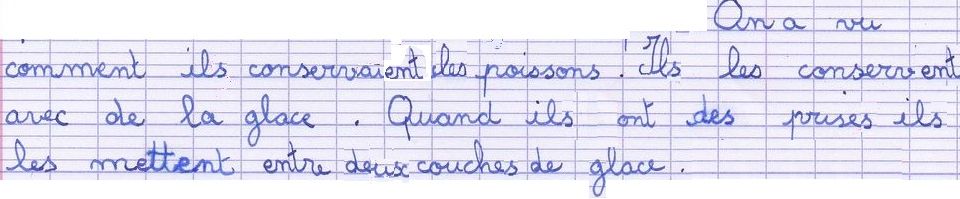 On a vu
comment ils conservaient les poissons. Ils les conservent
avec de la glace. Quand ils ont des prises ils
les mettent entre deux couches de glace.